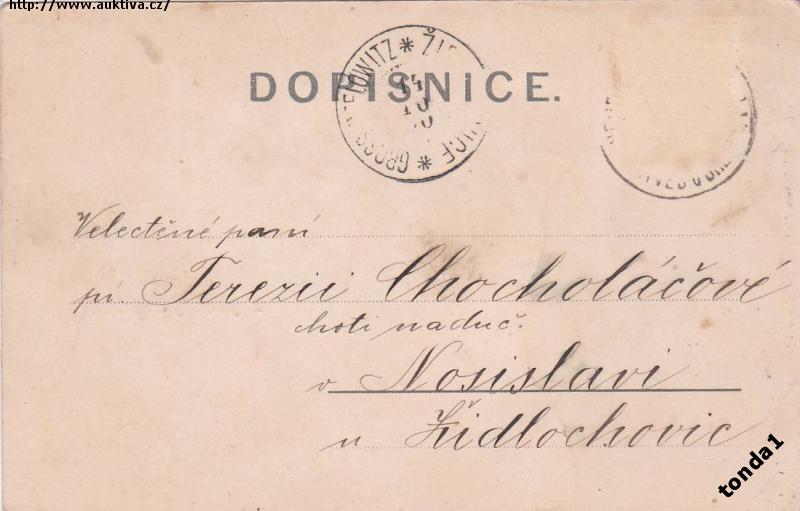 http://www.auktiva.cz/
DOPISNICE.
GROSS
Velectěné paní
pí. Terezii Chocholáčové
choti naduč.
v Nosislavi
u Židlochovic
tonda1